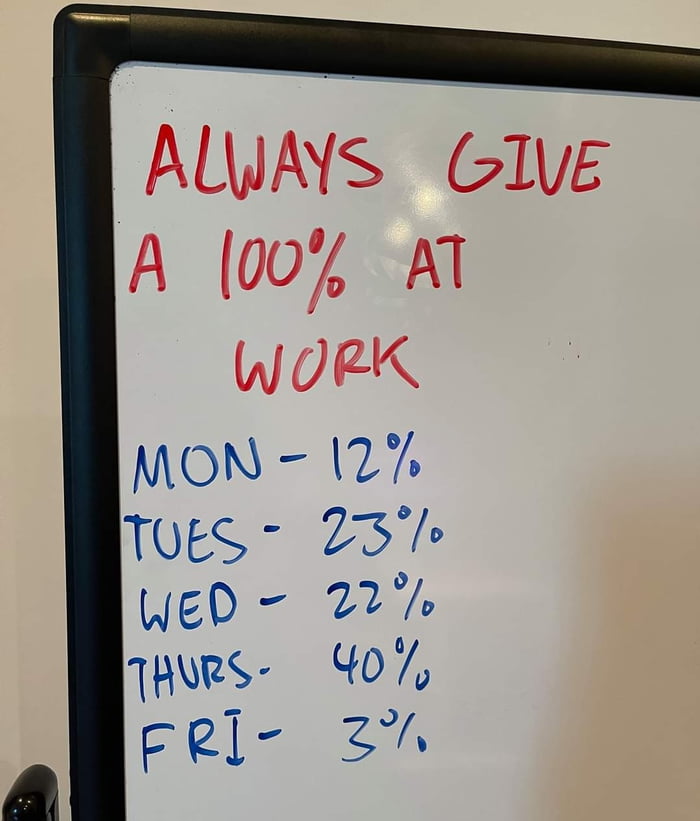 ALWAYS GIVE
A 100% AT
WORK
MON - 12%
TUES - 23%
WED - 22%
THURS- 40%
FRI - 3%